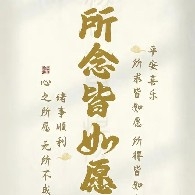 平安喜乐
所求皆如愿 所得皆如
所念皆如愿
诸事顺利
心之所愿 无所不成